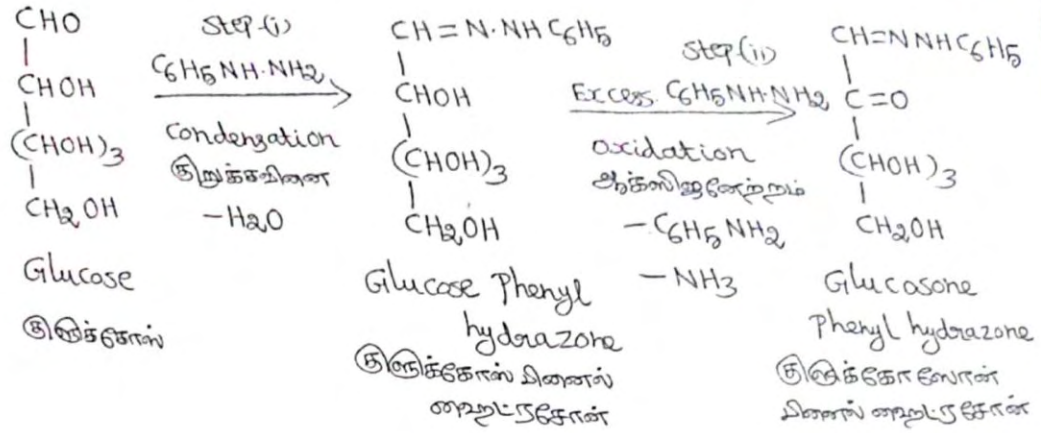 CHO
|
CHOH
|
(CHOH)3
|
CH2OH
Glucose
குளுக்கோஸ்
Step-(i)
C6H5NH·NH2
Condensation
குறுக்கவினை
-H2O
CH=N·NHC6H5
|
CHOH
|
(CHOH)3
|
CH2OH
Glucose Phenyl
hydrazone
குளுக்கோஸ் பினைல்
ஹைட்ரசோன்
Step(ii)
Excess. C6H5NH·NH2
oxidation
ஆக்ஸிஜனேற்றம்
-C6H5NH2
-NH3
CH=NNHC6H5
|
C=O
|
(CHOH)3
|
CH2OH
Glucosone
Phenyl hydrazone
குளுக்கோஸோன்
பினைல் ஹைட்ரசோன்